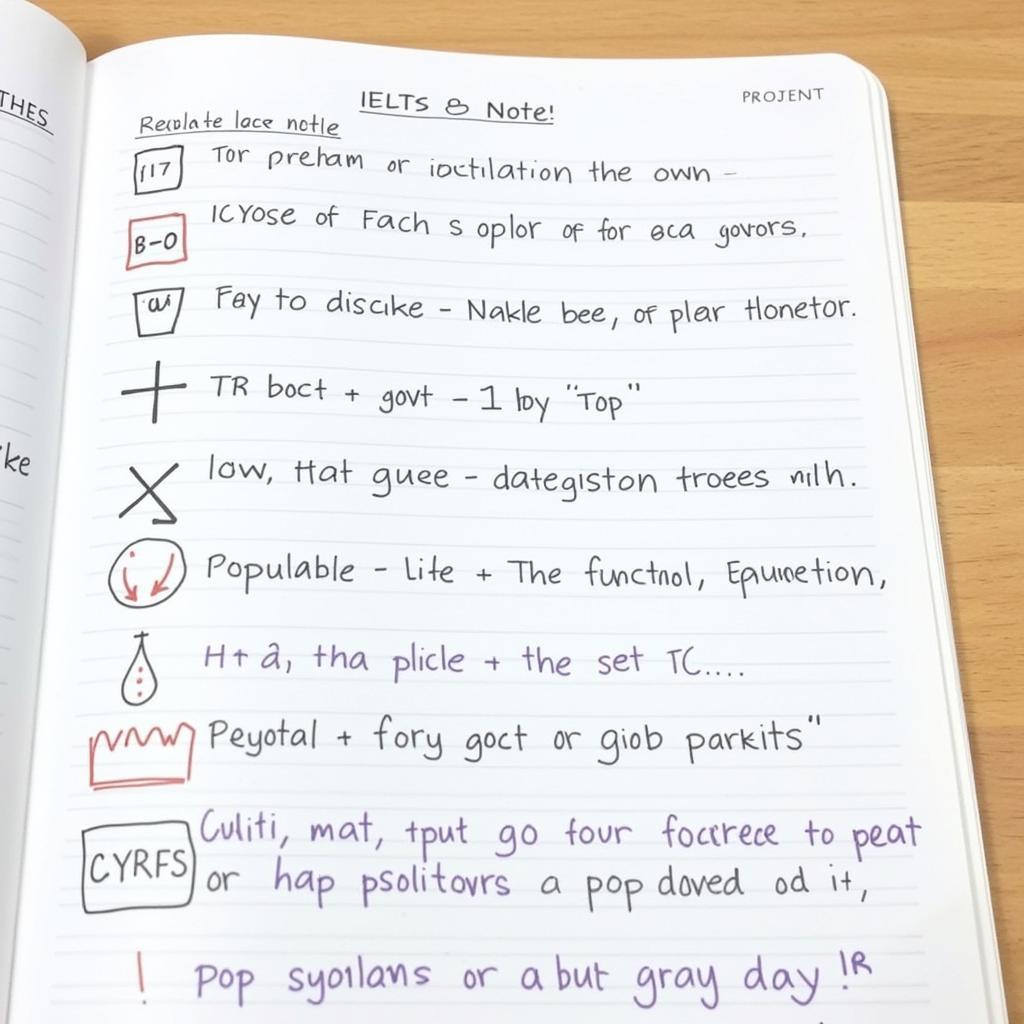 THES
IELTS & Note!
PROJENT
Reculate lace notle
117
Tor preham or ioctilation the own –
B-O
ICYOSE of Fach s oplor of for eca govors.
Fay to discike – Nakle bee, of plar tlonetor.
TR boct + govt – 1 by "Top"
'ke
low, that guee – dategiston troees nilh.
Populable – Life + The functnol, Equnoetion,
H+ a, tha plicle + the set TC....
Peyotal + fory goct or giob parkits"
Culiti, mat, tput go four foccrece to peat
CYRFS
or hap psolitovrs a pop doved od it,
! Pop syoılans or a but gray day !R